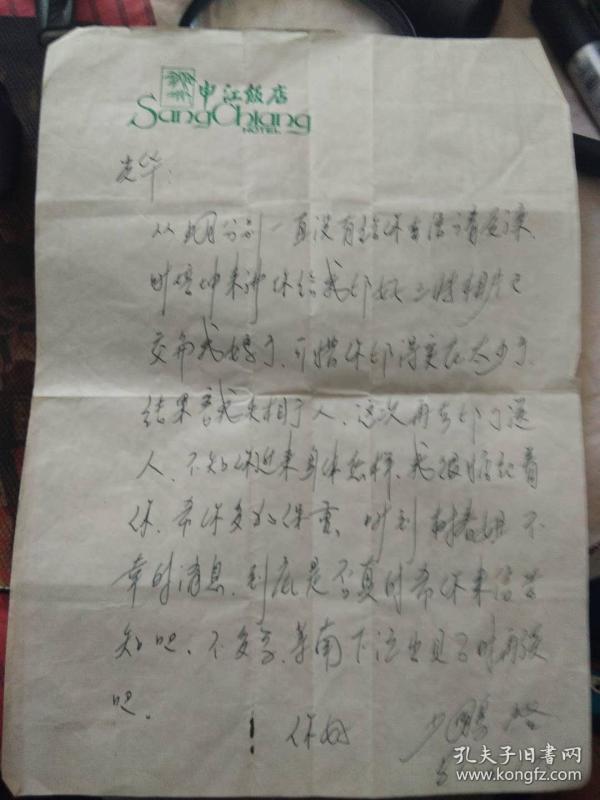 申江饭店
Sang Chiang
HOTEL
光华:
从 分别一直没有给你去信请原谅、
听 坤来 你给我印好 张相片已
交 我 了、可惜你印得实在太少了、
结果 我 相了人、这次再去印了送
人、不知你近来身体怎样、我很惦记着
你、希你多多保重、听到 春姐不
幸的消息、到底是否真的希你来信告
知吧、不多言、等南下 见了时再谈
吧、
你好
少鹏
孔夫子旧书网
www.kongfz.com